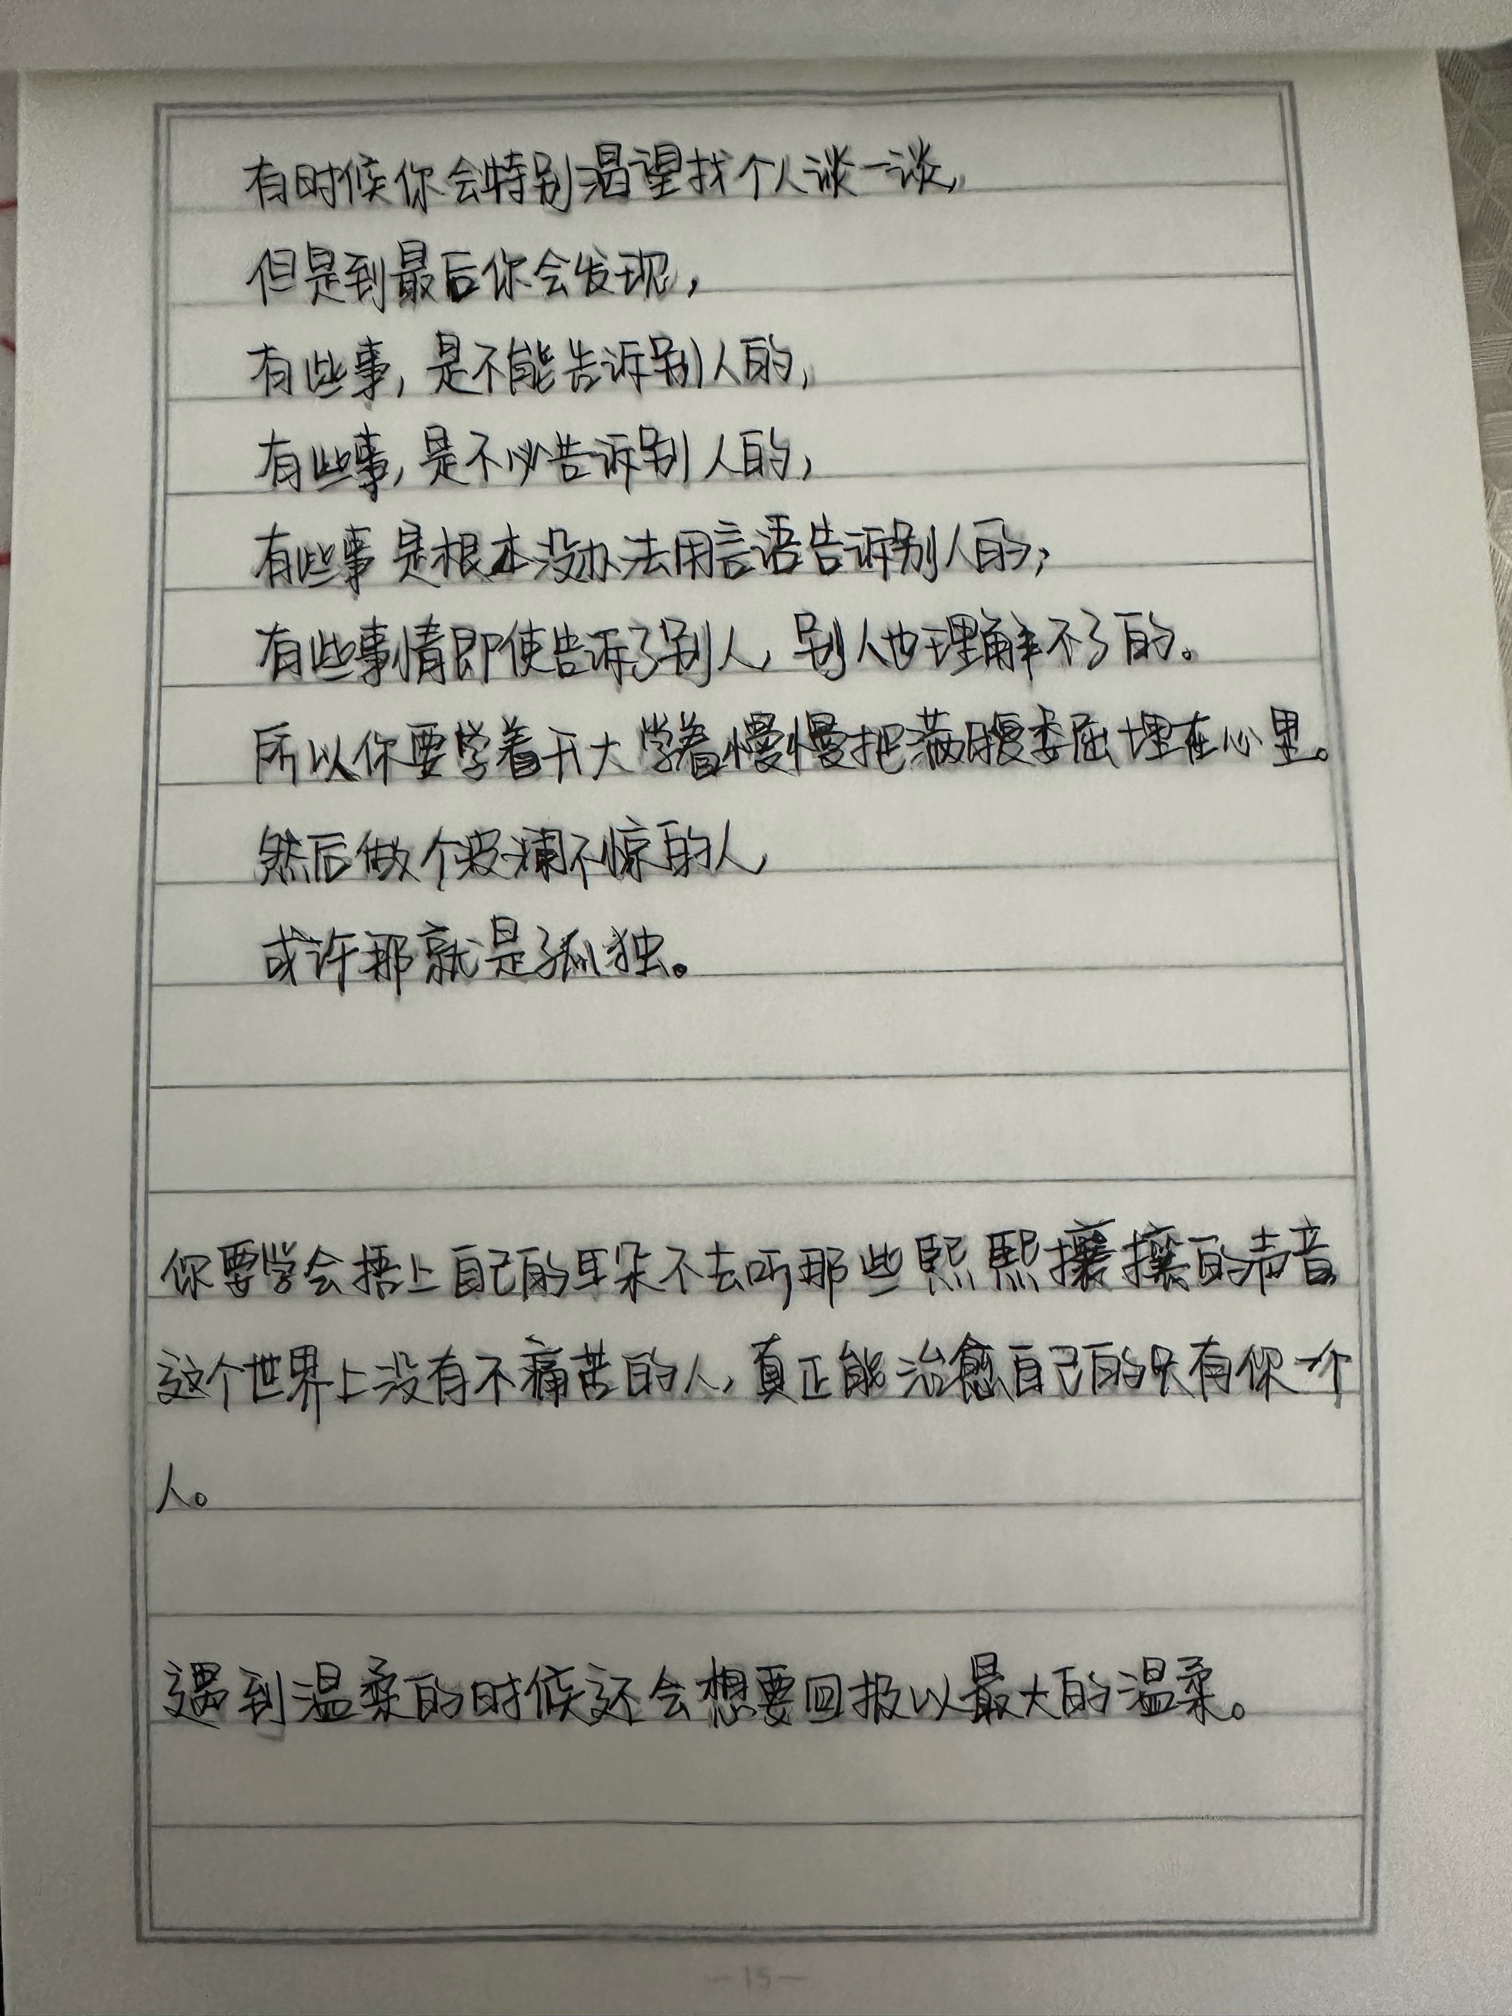 有时候你会特别渴望找个人谈一谈,
但是到最后你会发现,
有些事,是不能告诉别人的,
有些事,是不必告诉别人的,
有些事是根本没办法用言语告诉别人的;
有些事情即使告诉了别人,别人也理解不了的。
所以你要学着开大学着慢慢把满腹委屈埋在心里。
然后做个波澜不惊的人,
或许那就是孤独。
你要学会捂上自己的耳朵不去听那些熙熙攘攘的声音
这个世界上没有不痛苦的人,真正能治愈自己的只有你一个
人。
遇到温柔的时候还会想要回报以最大的温柔。
—15—